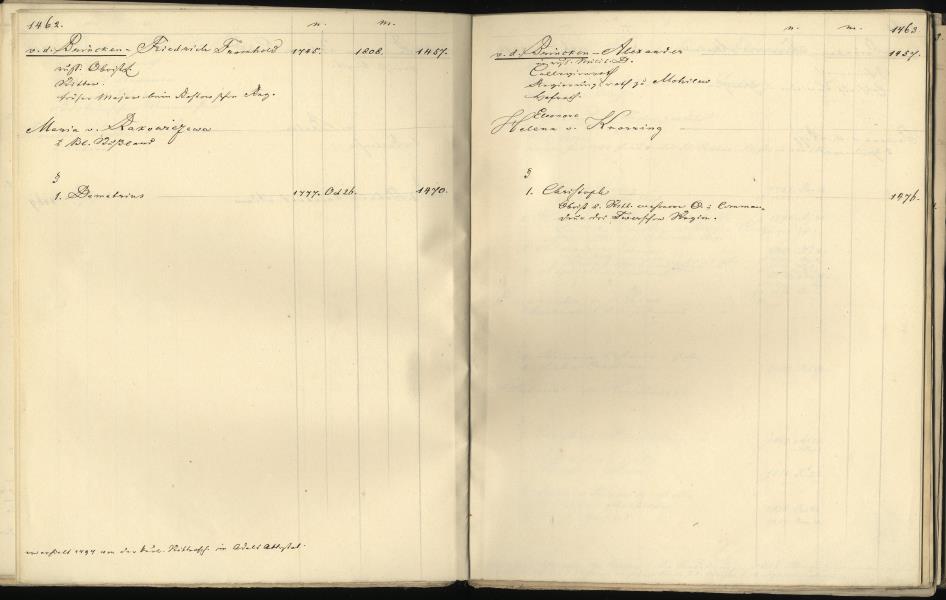 1462. n. m.
v. d. Brincken - Friedrich Fromhold 1745. 1808. 1457.
russ. Obrist
Ritter.
früher Major beim Rostowschen Reg.
Maria v. Rakowiczewa
z Kl. Rußland
§
1. Demetrius 1777. Oct 26. 1470.
1794 von der Kurl. Rittersch. ein Adels Attestat.
n. m. 1463
v. d. Brincken - Alexander 1457.
in russ. D.
Collegienrath
Regierungsrath zu Mohilew
Hofrath.
Eleonore
Helena v. Knorring
§
1. Christoph 1476.
Obrist u. Ritt. O. : Comman-
deur des Twerschen Regim.